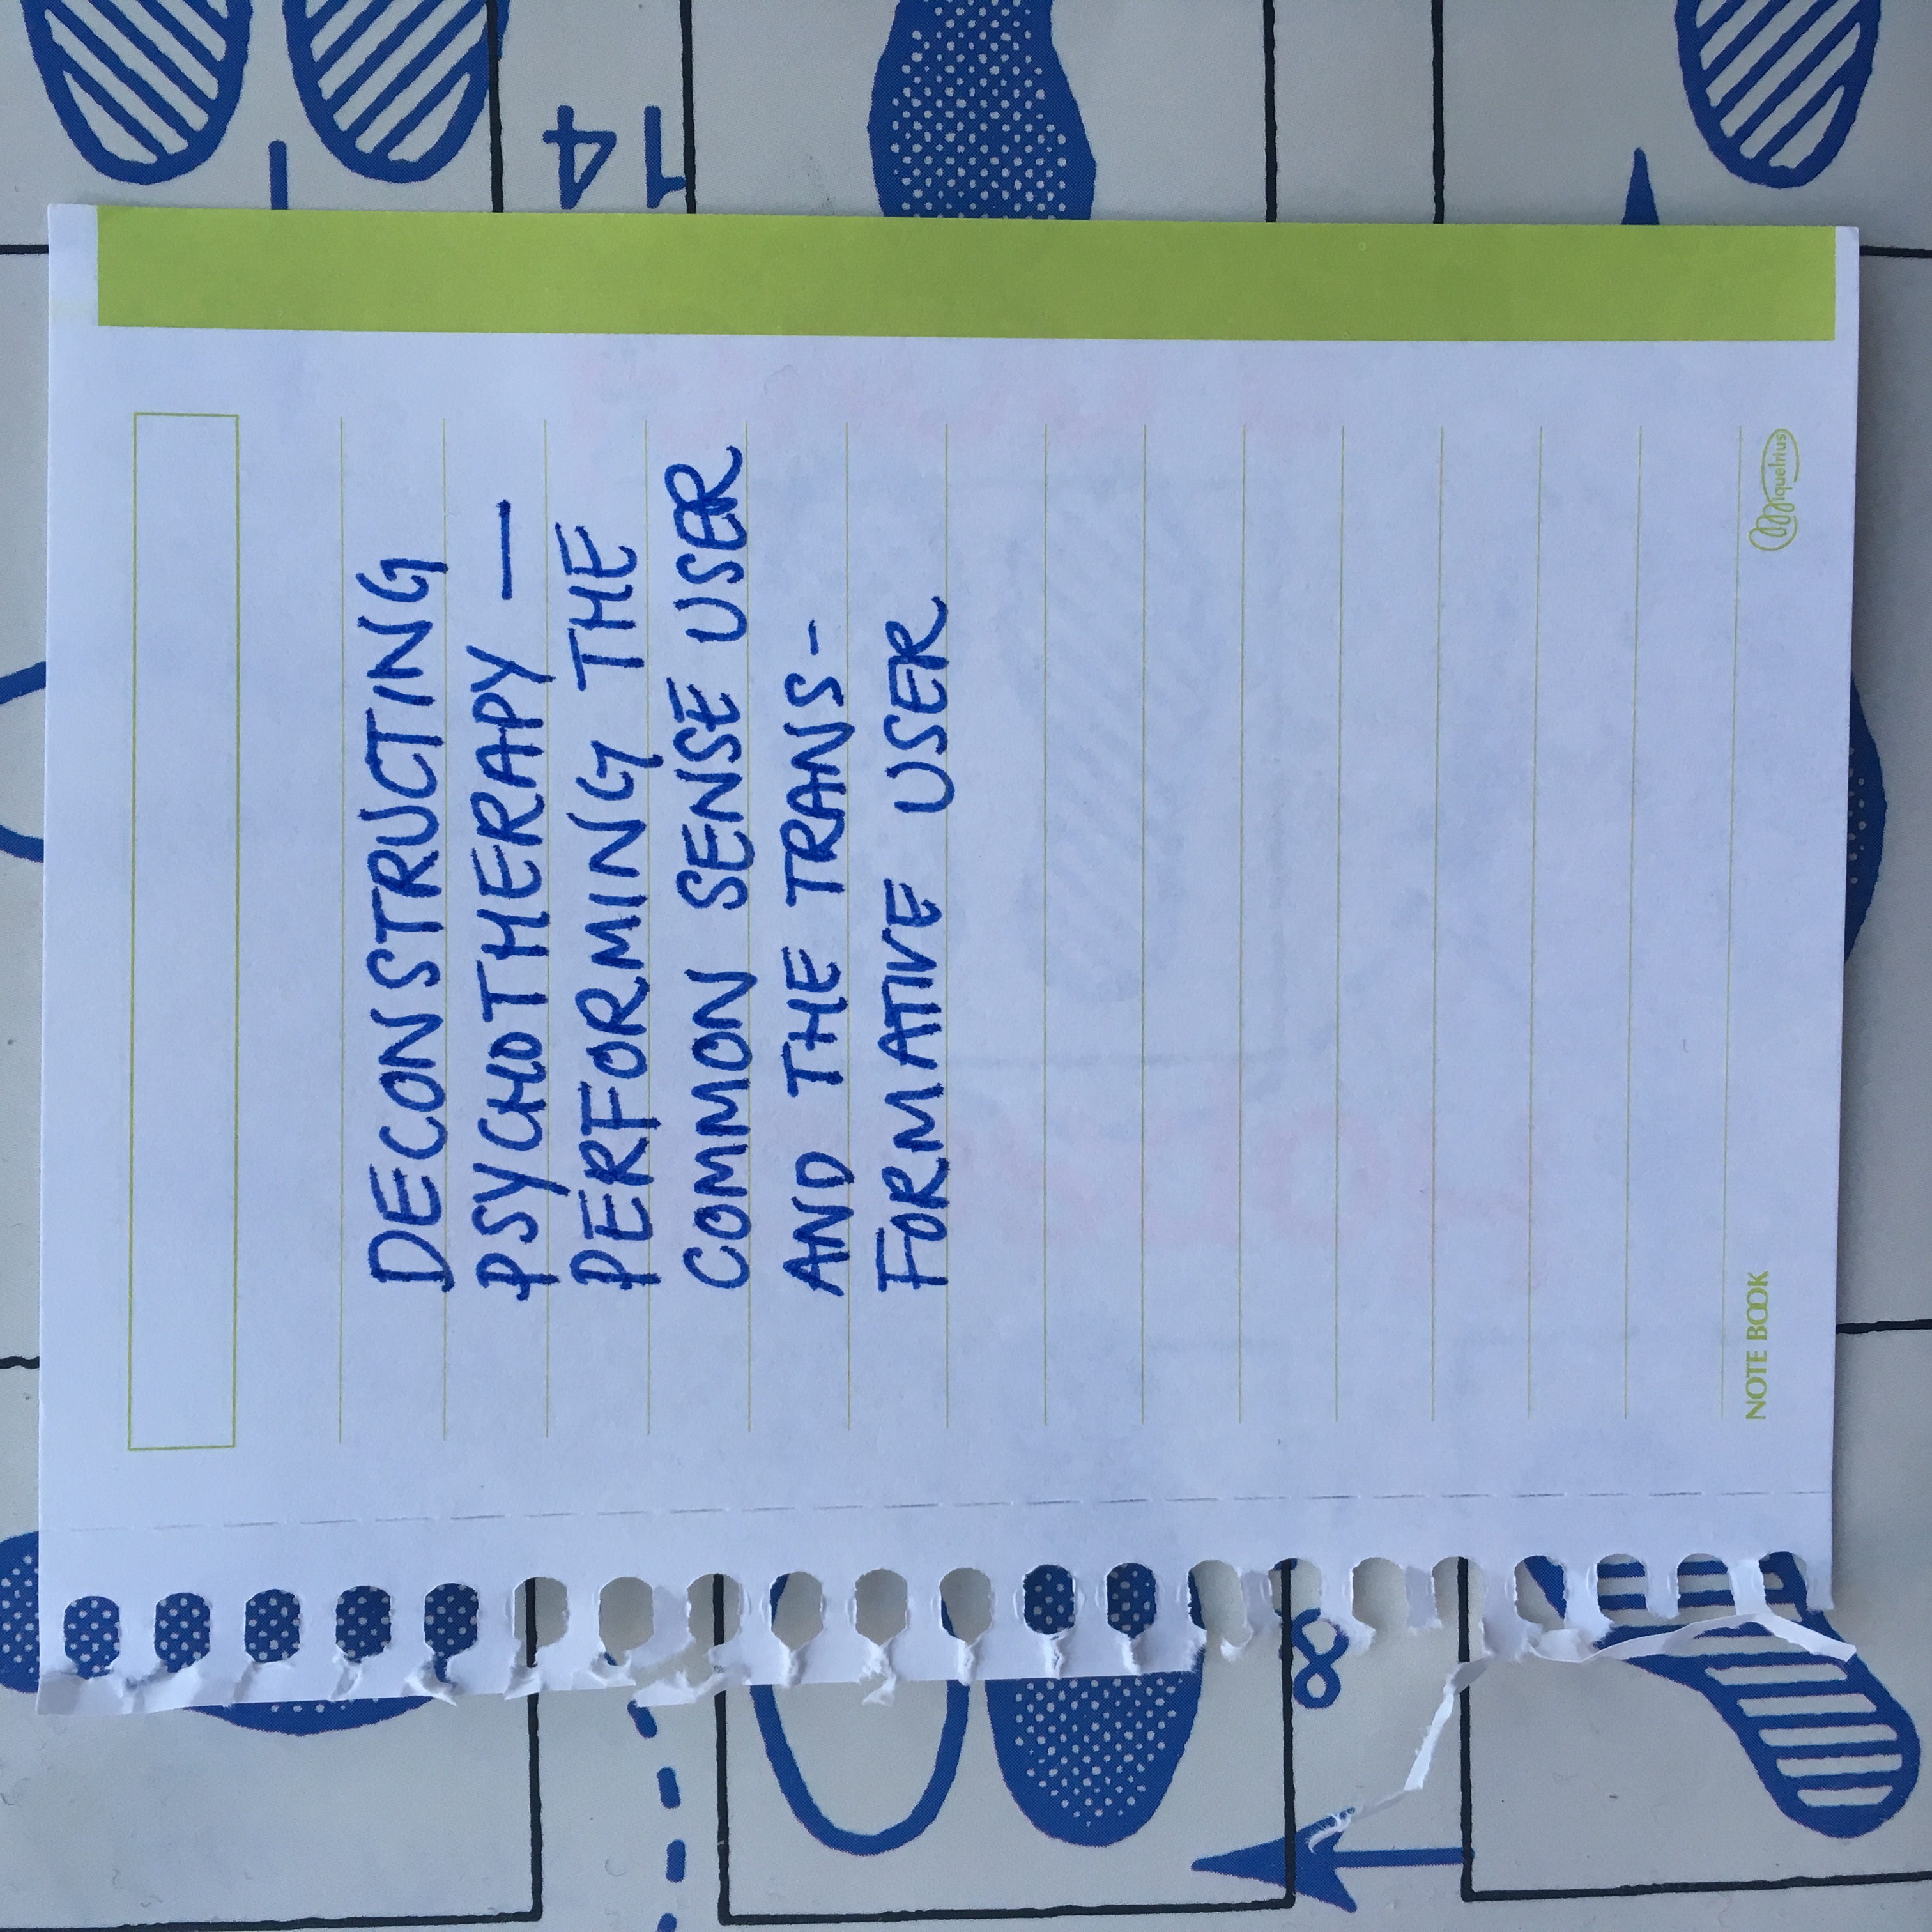 14
DECONSTRUCTING
PSYCHOTHERAPY —
PERFORMING THE
COMMON SENSE USER
AND THE TRANS-
FORMATIVE USER
NOTE BOOK
Miquelrius
8